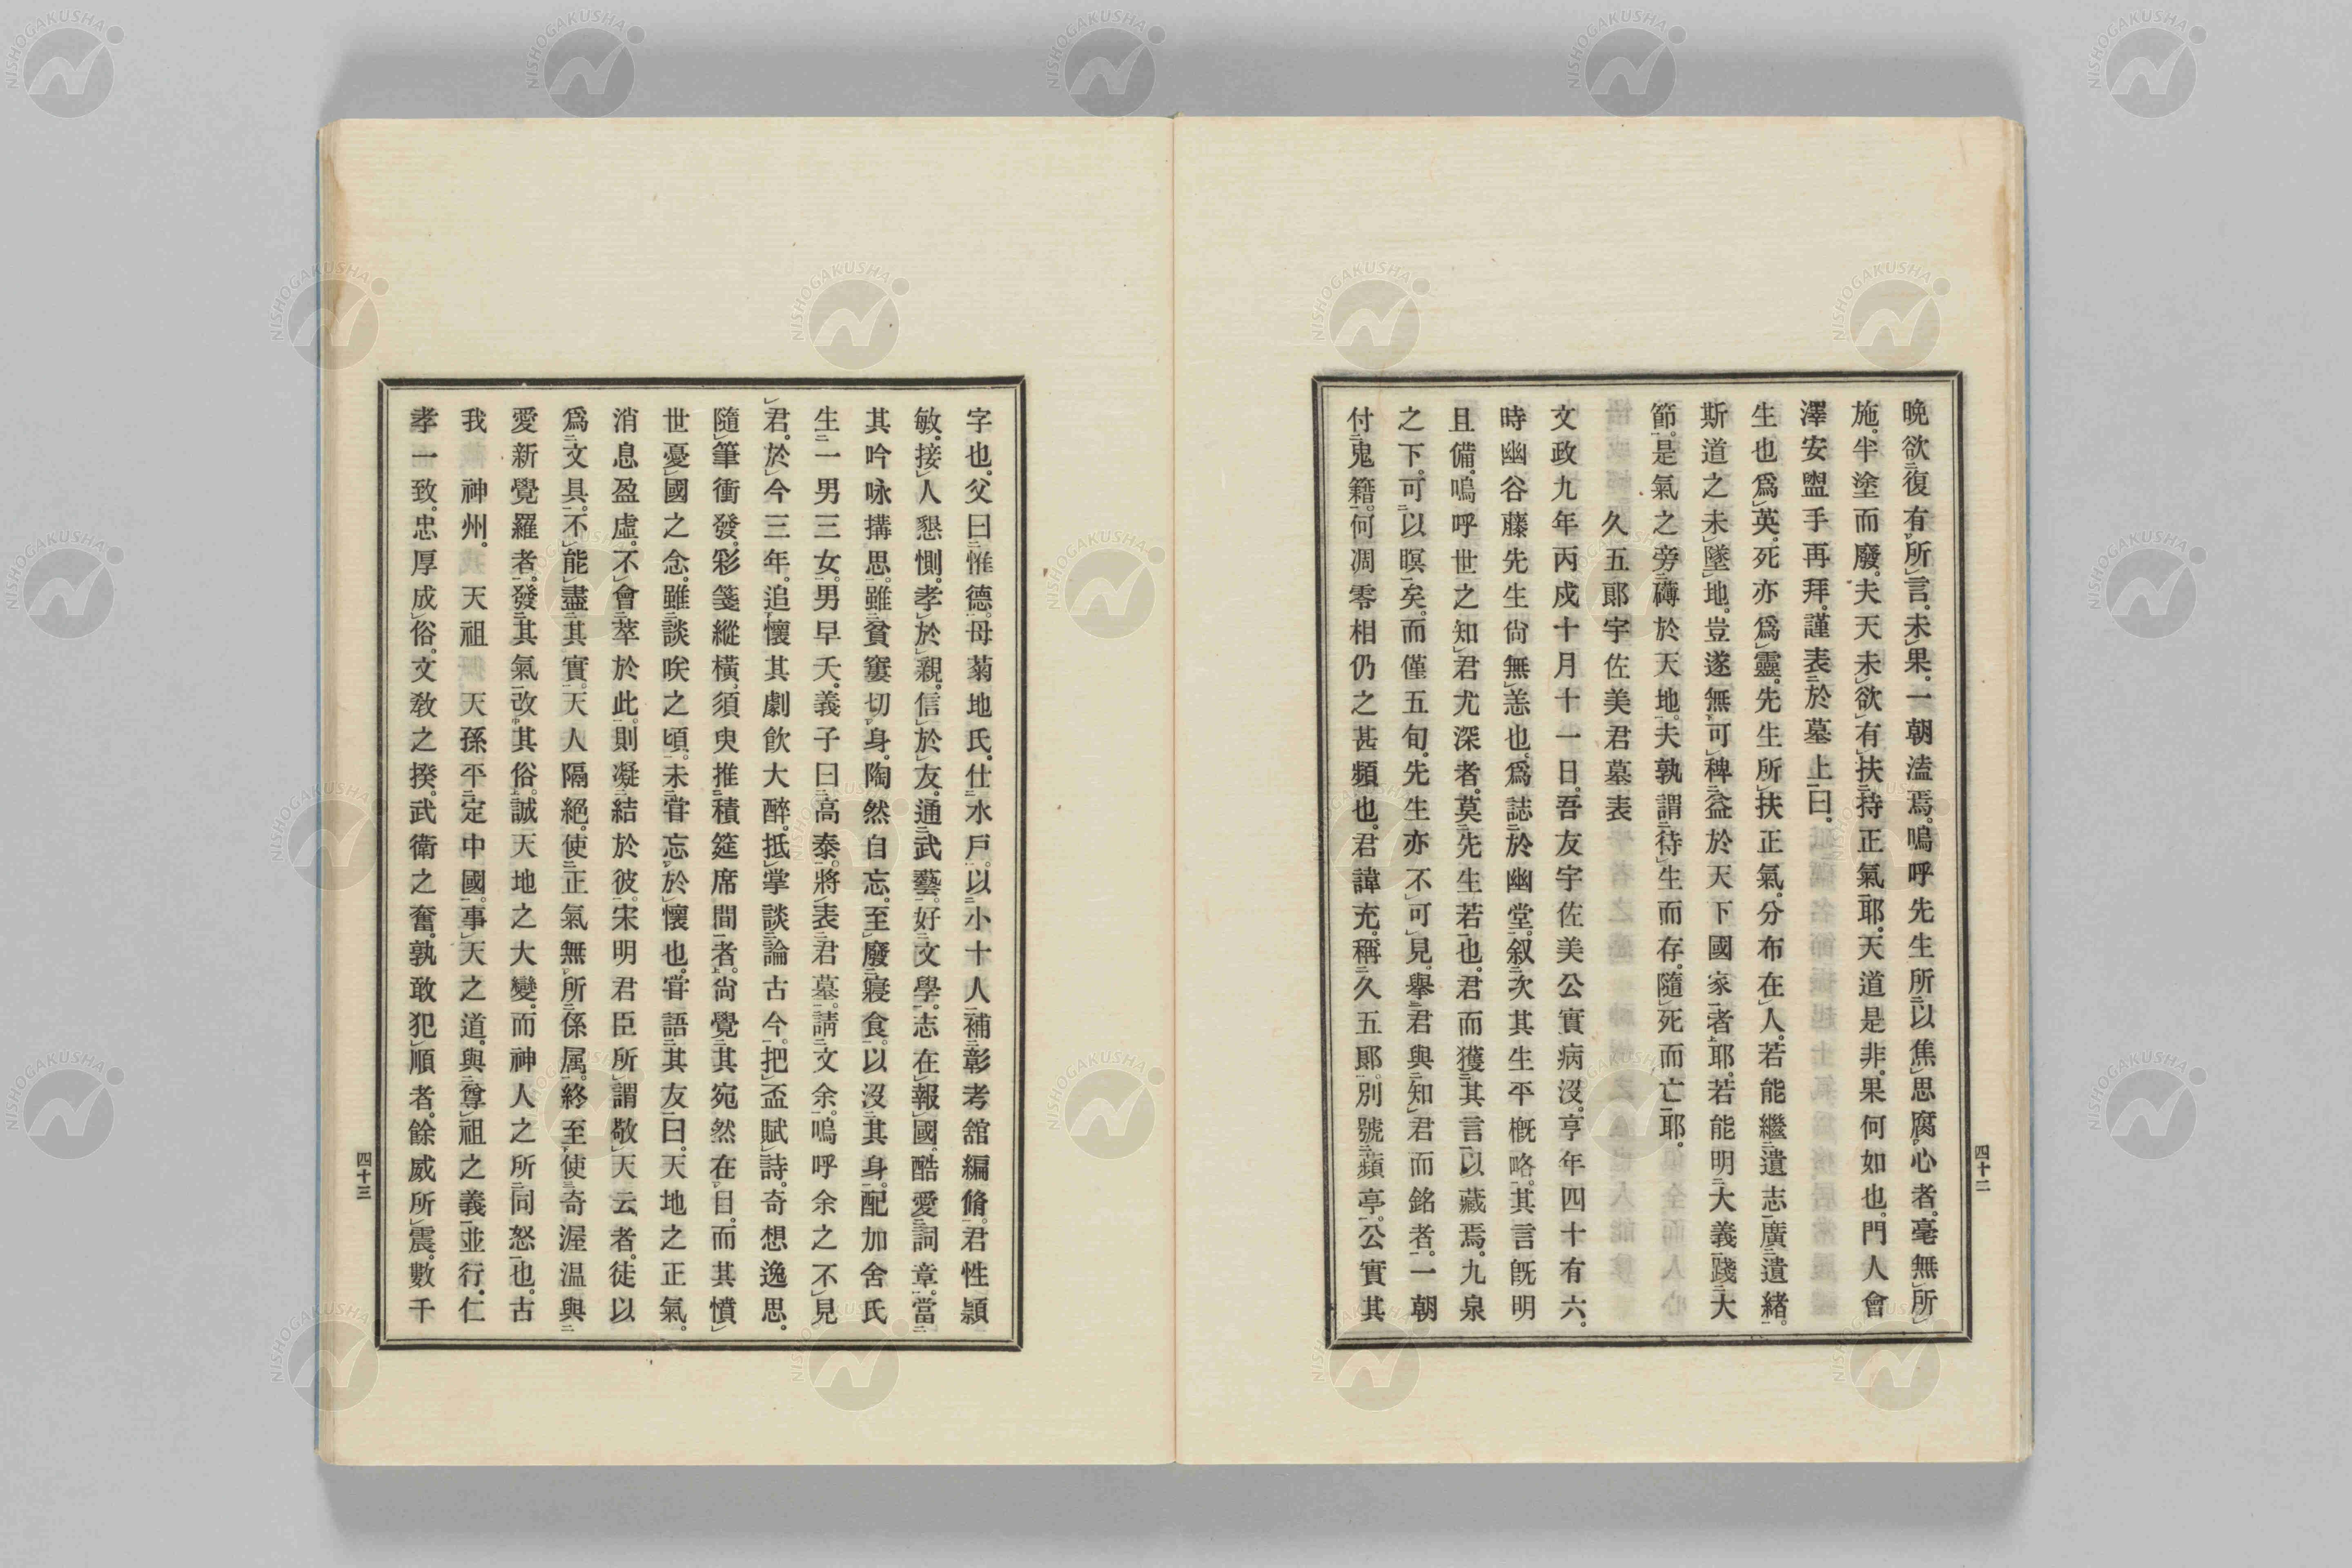 晩欲復有所言。未果。一朝溘焉。嗚呼先生所以焦思腐心者。毫無所
施。半塗而廢。夫天未欲有扶持正氣耶。天道是非。果何如也。門人會
澤安盥手再拜。謹表於墓上曰。
生也爲英。死亦爲靈。先生所扶正氣。分布在人。若能繼遺志廣遺緒。
斯道之未墜地。豈遂無可稗益於天下國家者耶。若能明大義踐大
節。是氣之旁礴於天地。夫孰謂待生而存。隨死而亡耶。
久五郞宇佐美君墓表
文政九年丙戍十月十一日。吾友宇佐美公實病沒。亨年四十有六。
時幽谷藤先生尙無恙也。爲誌於幽堂。叙次其生平槪略。其言旣明
且備。嗚呼世之知君尤深者。莫先生若也。君而獲其言以藏焉。九泉
之下。可以瞑矣。而僅五旬。先生亦不可見。擧君與知君而銘者。一朝
付鬼籍。何凋零相仍之甚頻也。君諱充。稱久五郞。別號蘋亭。公實其
四十二
字也。父曰惟德。母菊地氏。仕水戶。以小十人補彰考舘編脩。君性穎
敏。接人懇惻。孝於親。信於友。通武藝。好文學。志在報國。酷愛詞章。當
其吟咏搆思。雖貧窶切身。陶然自忘。至廢寢食。以沒其身。配加舍氏
生一男三女。男早夭。義子曰高泰。將表君墓。請文余。嗚呼余之不見
君。於今三年。追懷其劇飮大醉。抵掌談論古今。把盃賦詩。奇想逸思。
隨筆衝發。彩箋縱橫。須臾推積筵席間者。尙覺其宛然在目。而其憤
世憂國之念。雖談咲之頃。未甞忘於懷也。甞語其友曰。天地之正氣。
消息盈虛。不會萃於此。則凝結於彼。宋明君臣所謂敬天云者。徒以
爲文具。不能盡其實。天人隔絕。使正氣無所係属。終至使奇渥温與
愛新覺羅者。發其氣改其俗。誠天地之大變。而神人之所同怒也。古
我神州。天祖天孫。平定中國。事天之道。與尊祖之義並行。仁
孝一致。忠厚成俗。文敎之揆。武衛之奮。孰敢犯順者。餘威所震。數千
四十三